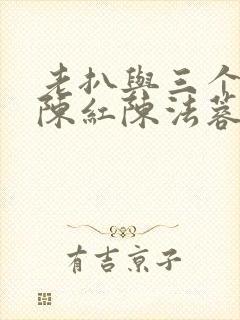 老扒與三个
陳紅陳法蓉
有吉京子